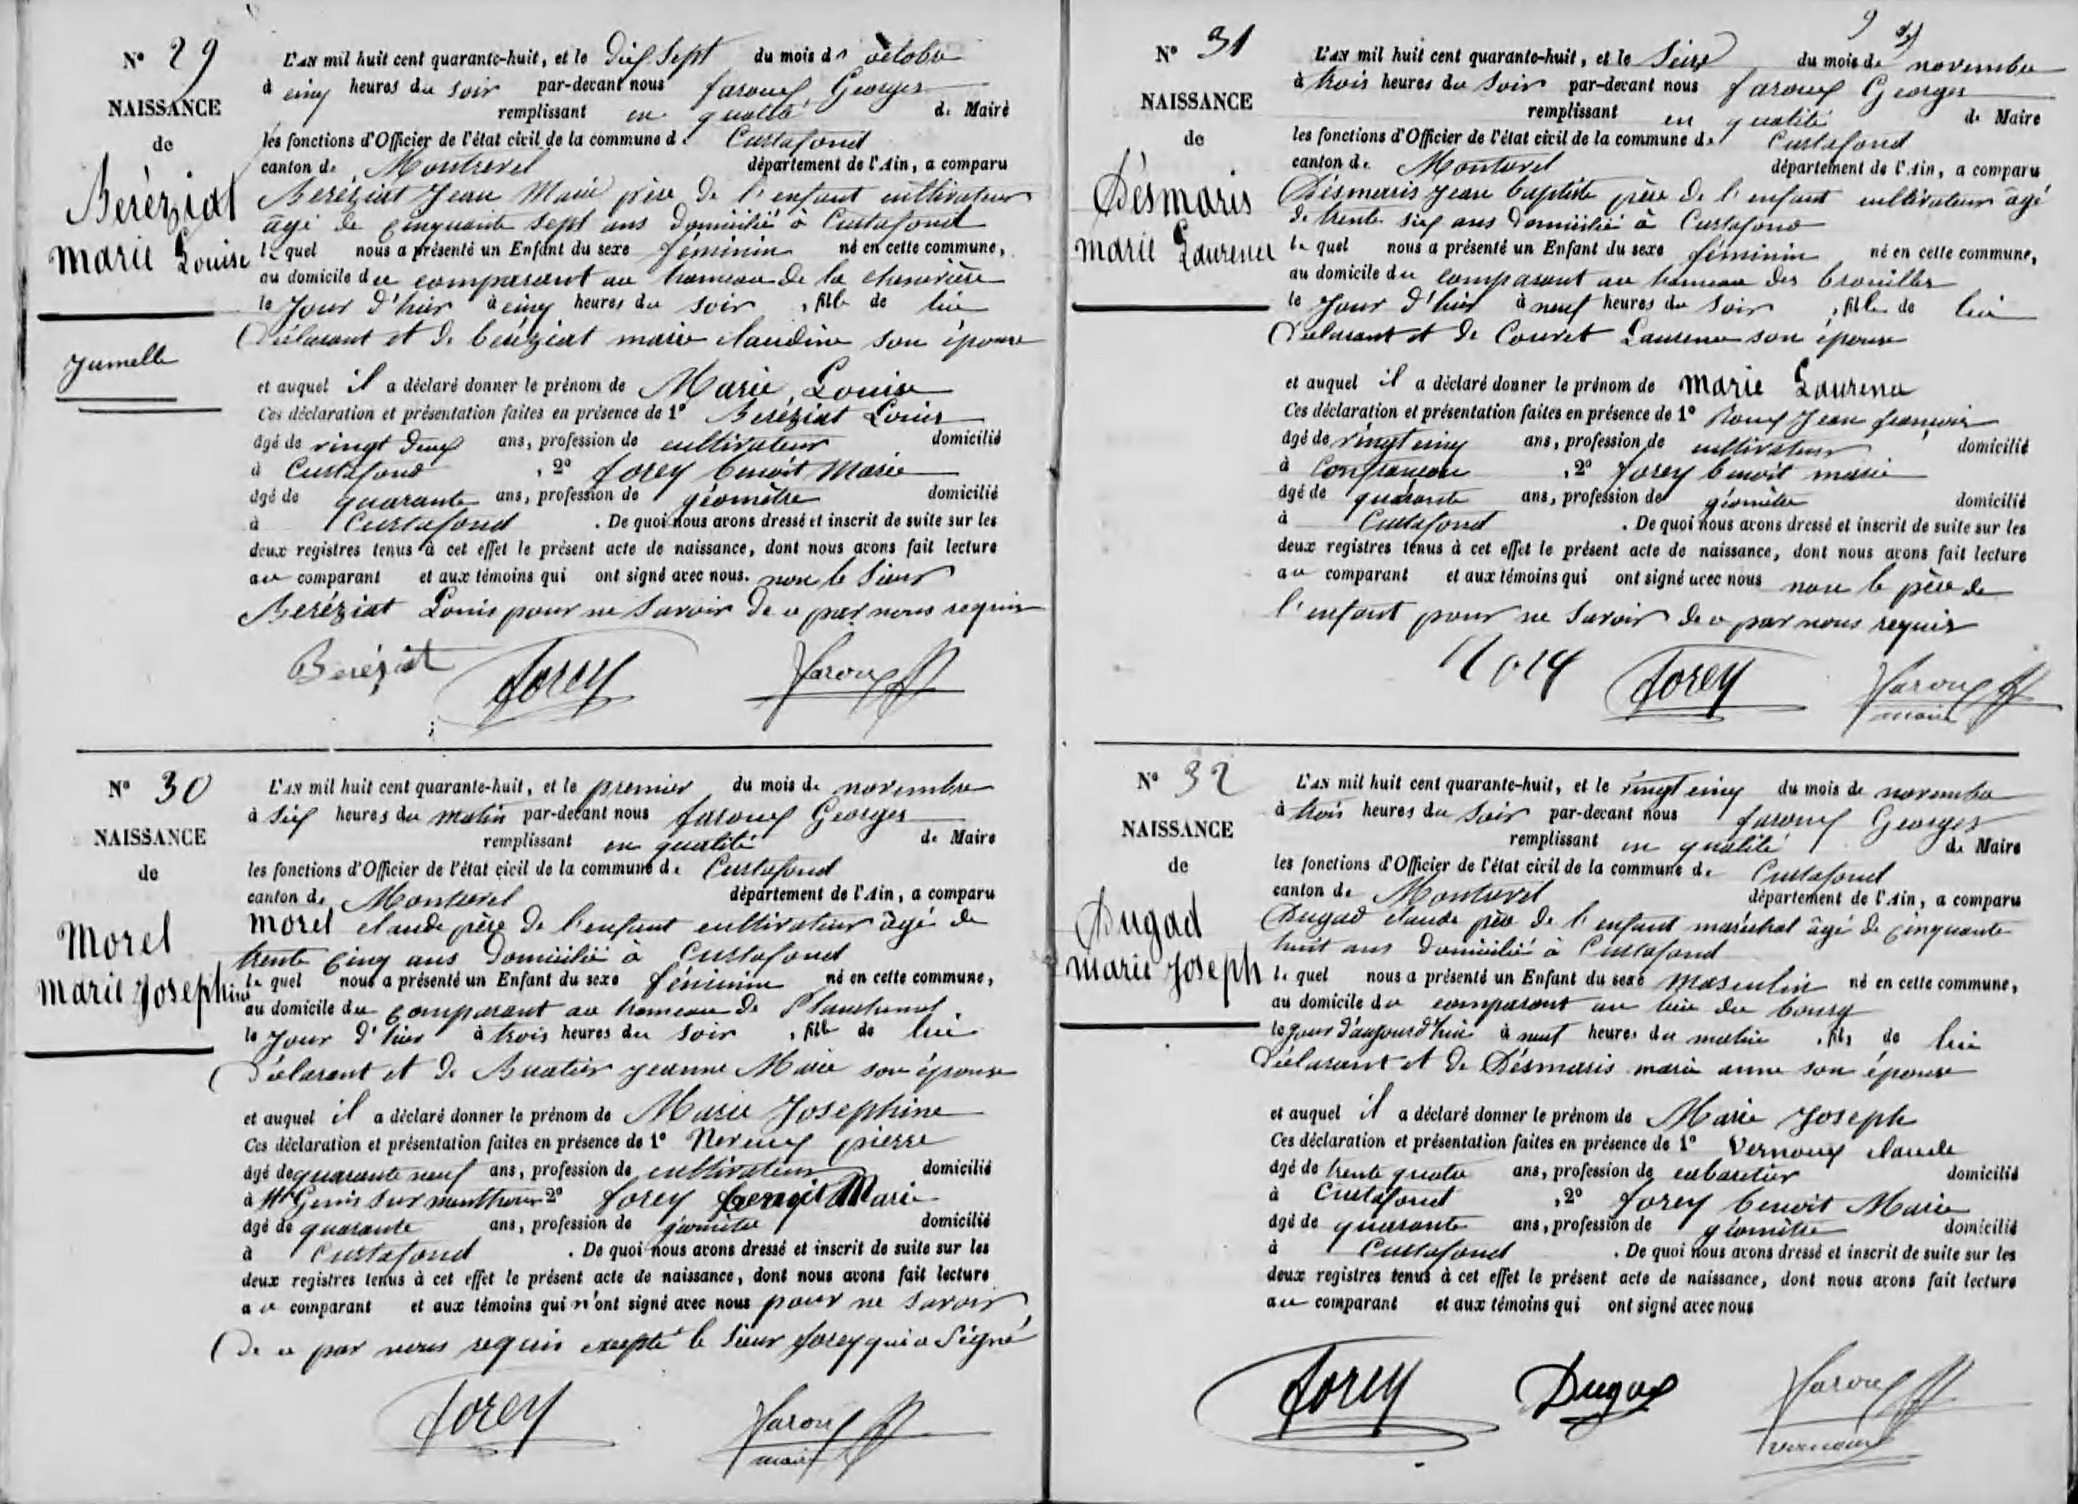 N° 29
NAISSANCE
de
Beréziat
marie Louise
Jumelle
L'AN mil huit cent quarante-huit, et le dix sept du mois d' octobre
à cinq heures du soir par-devant nous faroux Georges
remplissant en qualité de Maire
les fonctions d'Officier de l'état civil de la commune de Curtafond
canton de Montrevel département de l'Ain, a comparu
Beréziat Jean Marie père de l'enfant cultivateur
âgé de cinquante sept ans domicilié à Curtafond
lequel nous a présenté un Enfant du sexe féminin né en cette commune,
au domicile du comparant au hameau de la chenevière
le Jour d'hier à cinq heures du soir , fille de lui
Déclarant et de beréziat marie claudine son épouse
et auquel il a déclaré donner le prénom de Marie Louise
Ces déclaration et présentation faites en présence de 1° Beréziat Louis
âgé de vingt deux ans, profession de cultivateur domicilié
à Curtafond , 2° forey benoit Marie
âgé de quarante ans, profession de géomètre domicilié
à Curtafond . De quoi nous avons dressé et inscrit de suite sur les
deux registres tenus à cet effet le présent acte de naissance, dont nous avons fait lecture
au comparant et aux témoins qui ont signé avec nous. non le sieur
Beréziat Louis pour ne savoir de ce par nous requis
Beréziat forey faroux
N° 30
NAISSANCE
de
Morel
marie Josephine
L'AN mil huit cent quarante-huit, et le premier du mois de novembre
à six heures du matin par-devant nous faroux Georges
remplissant en qualité de Maire
les fonctions d'Officier de l'état civil de la commune de Curtafond
canton de Montrevel département de l'Ain, a comparu
morel claude père de l'enfant cultivateur âgé de
trente cinq ans domicilié à Curtafond
lequel nous a présenté un Enfant du sexe féminin né en cette commune,
au domicile du comparant au hameau de
le Jour d'hier à trois heures du soir , fille de lui
Déclarant et de Buatier jeanne Marie son épouse
et auquel il a déclaré donner le prénom de Marie Josephine
Ces déclaration et présentation faites en présence de 1° pierre
âgé de quarante neuf ans, profession de cultivateur domicilié
à St Genis sur menthon 2° forey benoit Marie
âgé de quarante ans, profession de géomètre domicilié
à Curtafond . De quoi nous avons dressé et inscrit de suite sur les
deux registres tenus à cet effet le présent acte de naissance, dont nous avons fait lecture
au comparant et aux témoins qui n'ont signé avec nous pour ne savoir
De ce par nous requis excepté le sieur forey qui a signé
forey faroux
maire
9
N° 31
NAISSANCE
de
Désmaris
marie Laurence
L'AN mil huit cent quarante-huit, et le seize du mois de novembre
à trois heures du soir par-devant nous faroux Georges
remplissant en qualité de Maire
les fonctions d'Officier de l'état civil de la commune de Curtafond
canton de Montrevel département de l'Ain, a comparu
Désmaris jean baptiste père de l'enfant cultivateur âgé
de trente six ans domicilié à Curtafond
lequel nous a présenté un Enfant du sexe féminin né en cette commune,
au domicile du comparant au hameau des brouilles
le Jour d'hier à neuf heures du soir , fille de lui
Déclarant et de Couret Laurence son épouse
et auquel il a déclaré donner le prénom de marie Laurence
Ces déclaration et présentation faites en présence de 1° Roux Jean françois
âgé de vingt cinq ans, profession de cultivateur domicilié
à Confrançon , 2° forey benoit marie
âgé de quarante ans, profession de géomètre domicilié
à Curtafond . De quoi nous avons dressé et inscrit de suite sur les
deux registres tenus à cet effet le présent acte de naissance, dont nous avons fait lecture
au comparant et aux témoins qui ont signé avec nous non le père de
l'enfant pour ne savoir de ce par nous requis
forey faroux
maire
N° 32
NAISSANCE
de
Dugad
marie Joseph
L'AN mil huit cent quarante-huit, et le vingt cinq du mois de novembre
à trois heures du soir par-devant nous faroux Georges
remplissant en qualité de Maire
les fonctions d'Officier de l'état civil de la commune de Curtafond
canton de Montrevel département de l'Ain, a comparu
Dugad claude père de l'enfant maréchal âgé de cinquante
huit ans domicilié à Curtafond
lequel nous a présenté un Enfant du sexe masculin né en cette commune,
au domicile du comparant au lieu du bourg
le jour d'aujourd'hui à neuf heures du matin , fils de lui
Déclarant et de Désmaris marie anne son épouse
et auquel il a déclaré donner le prénom de Marie Joseph
Ces déclaration et présentation faites en présence de 1° Vernoux claude
âgé de trente quatre ans, profession de cabaretier domicilié
à Curtafond , 2° forey benoit Marie
âgé de quarante ans, profession de géomètre domicilié
à Curtafond . De quoi nous avons dressé et inscrit de suite sur les
deux registres tenus à cet effet le présent acte de naissance, dont nous avons fait lecture
au comparant et aux témoins qui ont signé avec nous
forey Dugad faroux
vernoux